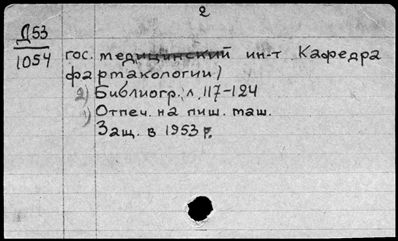 2
Д53
1054
гос. медицинский ин-т Кафедра
фармакологии)
2) Библиогр. л. 117-124
1) Отпеч. на пиш. маш.
Защ. в 1953 г.